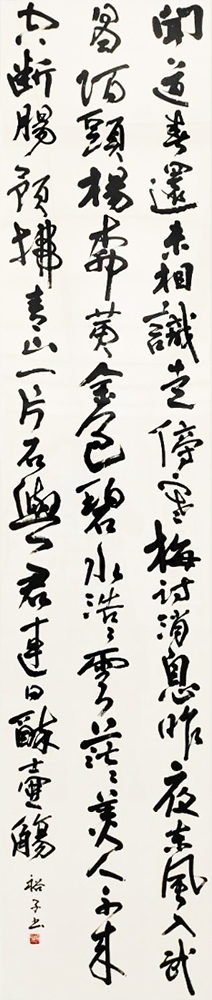 聞道春還未相識走傍寒梅訪消息昨夜東風入武
昌陌頭楊柳黄金色碧水浩々雲茫々美人不来
空断腸預拂青山一片石與君連日酔壷觴
裕子書